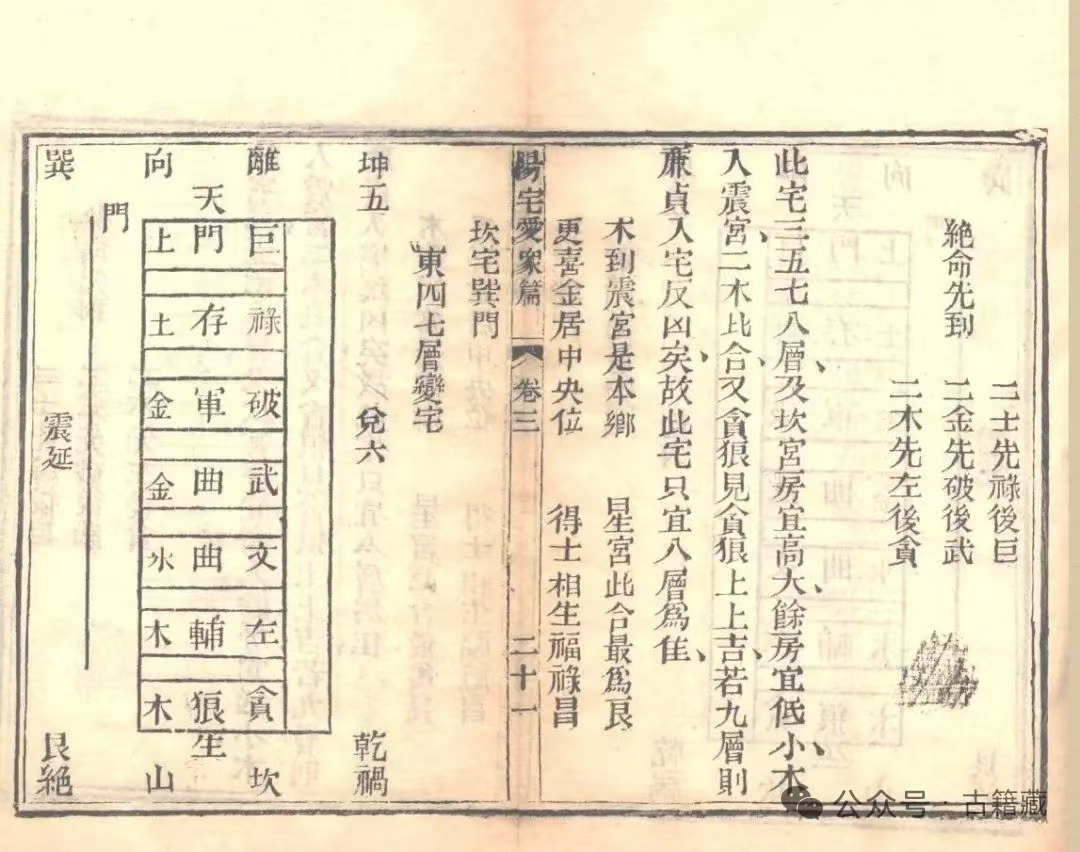 二土先祿後巨
絶命先到　二金先破後武
二木先左後貪
此宅三五七八層及坎宮房宜高大餘房宜低小木
入震宮二木比合又貪狼見貪狼上上吉若九層則
廉貞入宅反凶矣故此宅只宜八層爲佳
木到震宮是本鄉　星宮此合最爲良
更喜金居中央位　得土相生福祿昌
陽宅愛衆篇　卷三　二十一
坎宅巽門
東四七層變宅
坤五　兌六　乾禍
離　巨　祿　破　武　文　左　貪　坎
天　門　存　軍　曲　曲　輔　狼　生
向　土　土　金　金　水　木　木　山
門
巽　震延　艮絶
公众号·古籍藏